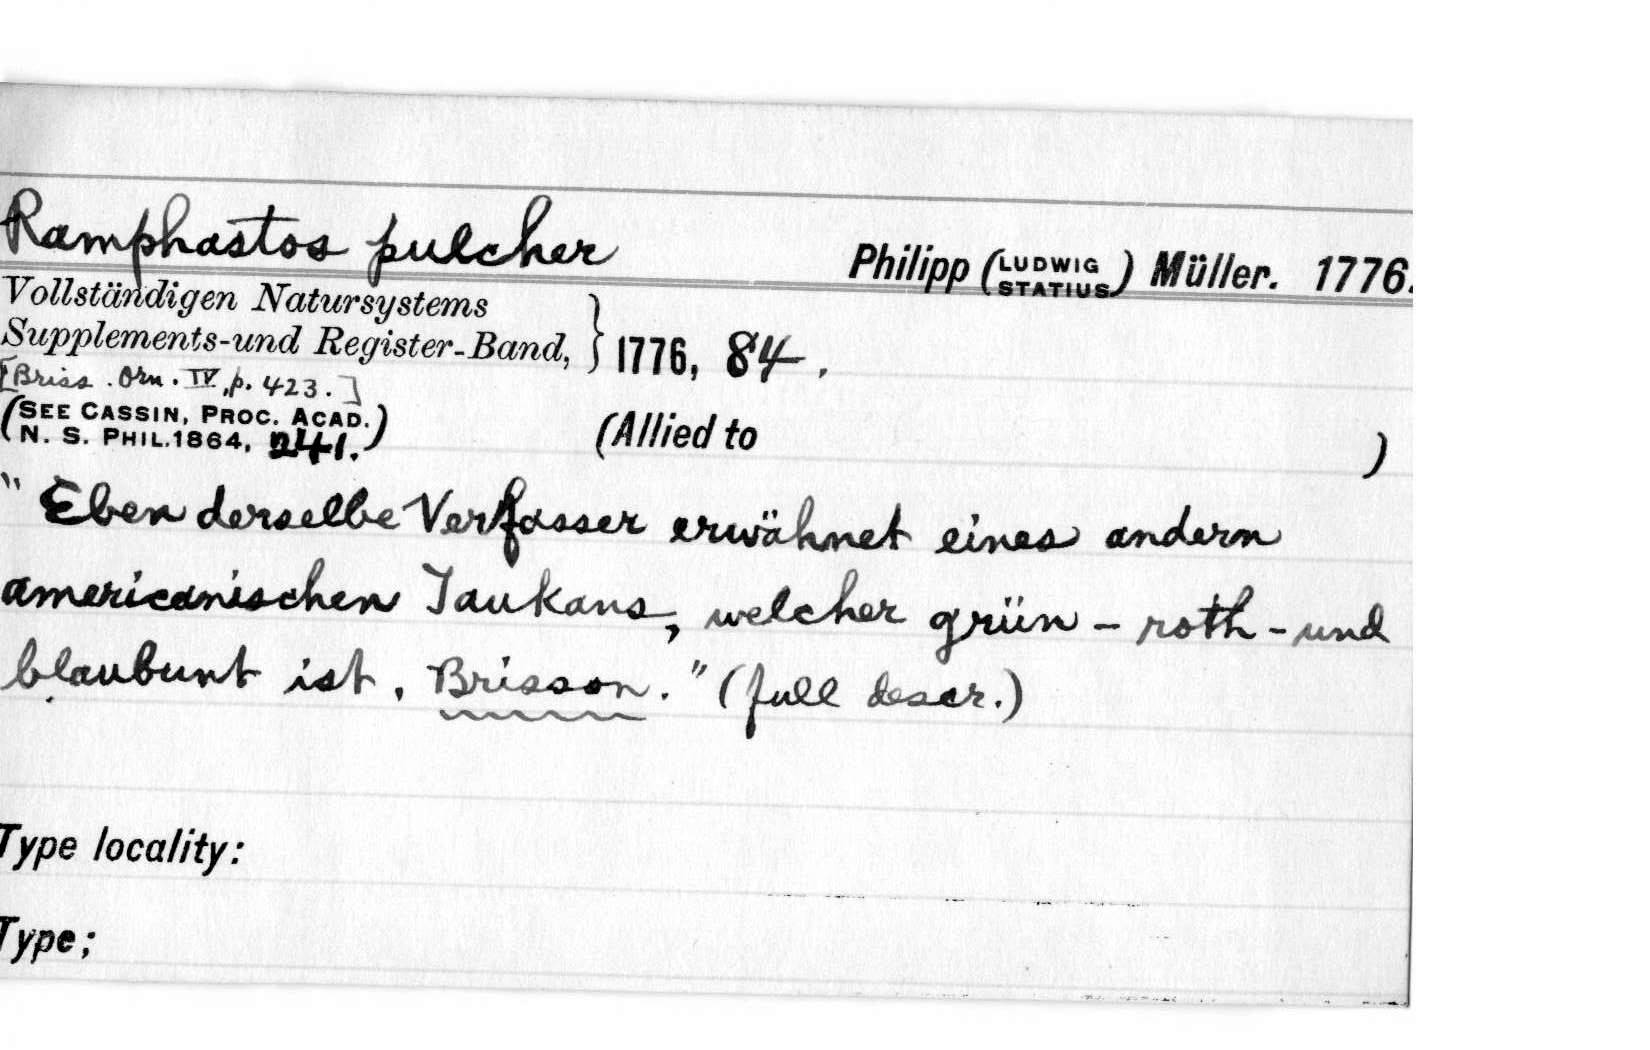 Ramphastos pulcher
Philipp (LUDWIG STATIUS) Müller. 1776.
Vollständigen Natursystems
Supplements-und Register-Band, } 1776, 84.
[Briss. Orn. IV, p. 423.]
(SEE CASSIN, PROC. ACAD.
N. S. PHIL. 1864, 241.)
(Allied to )
" Eben derselbe Verfasser erwähnet eines andern
americanischen Taukans, welcher grün - roth - und
blaubunt ist. Brisson." (full descr.)
Type locality:
Type;